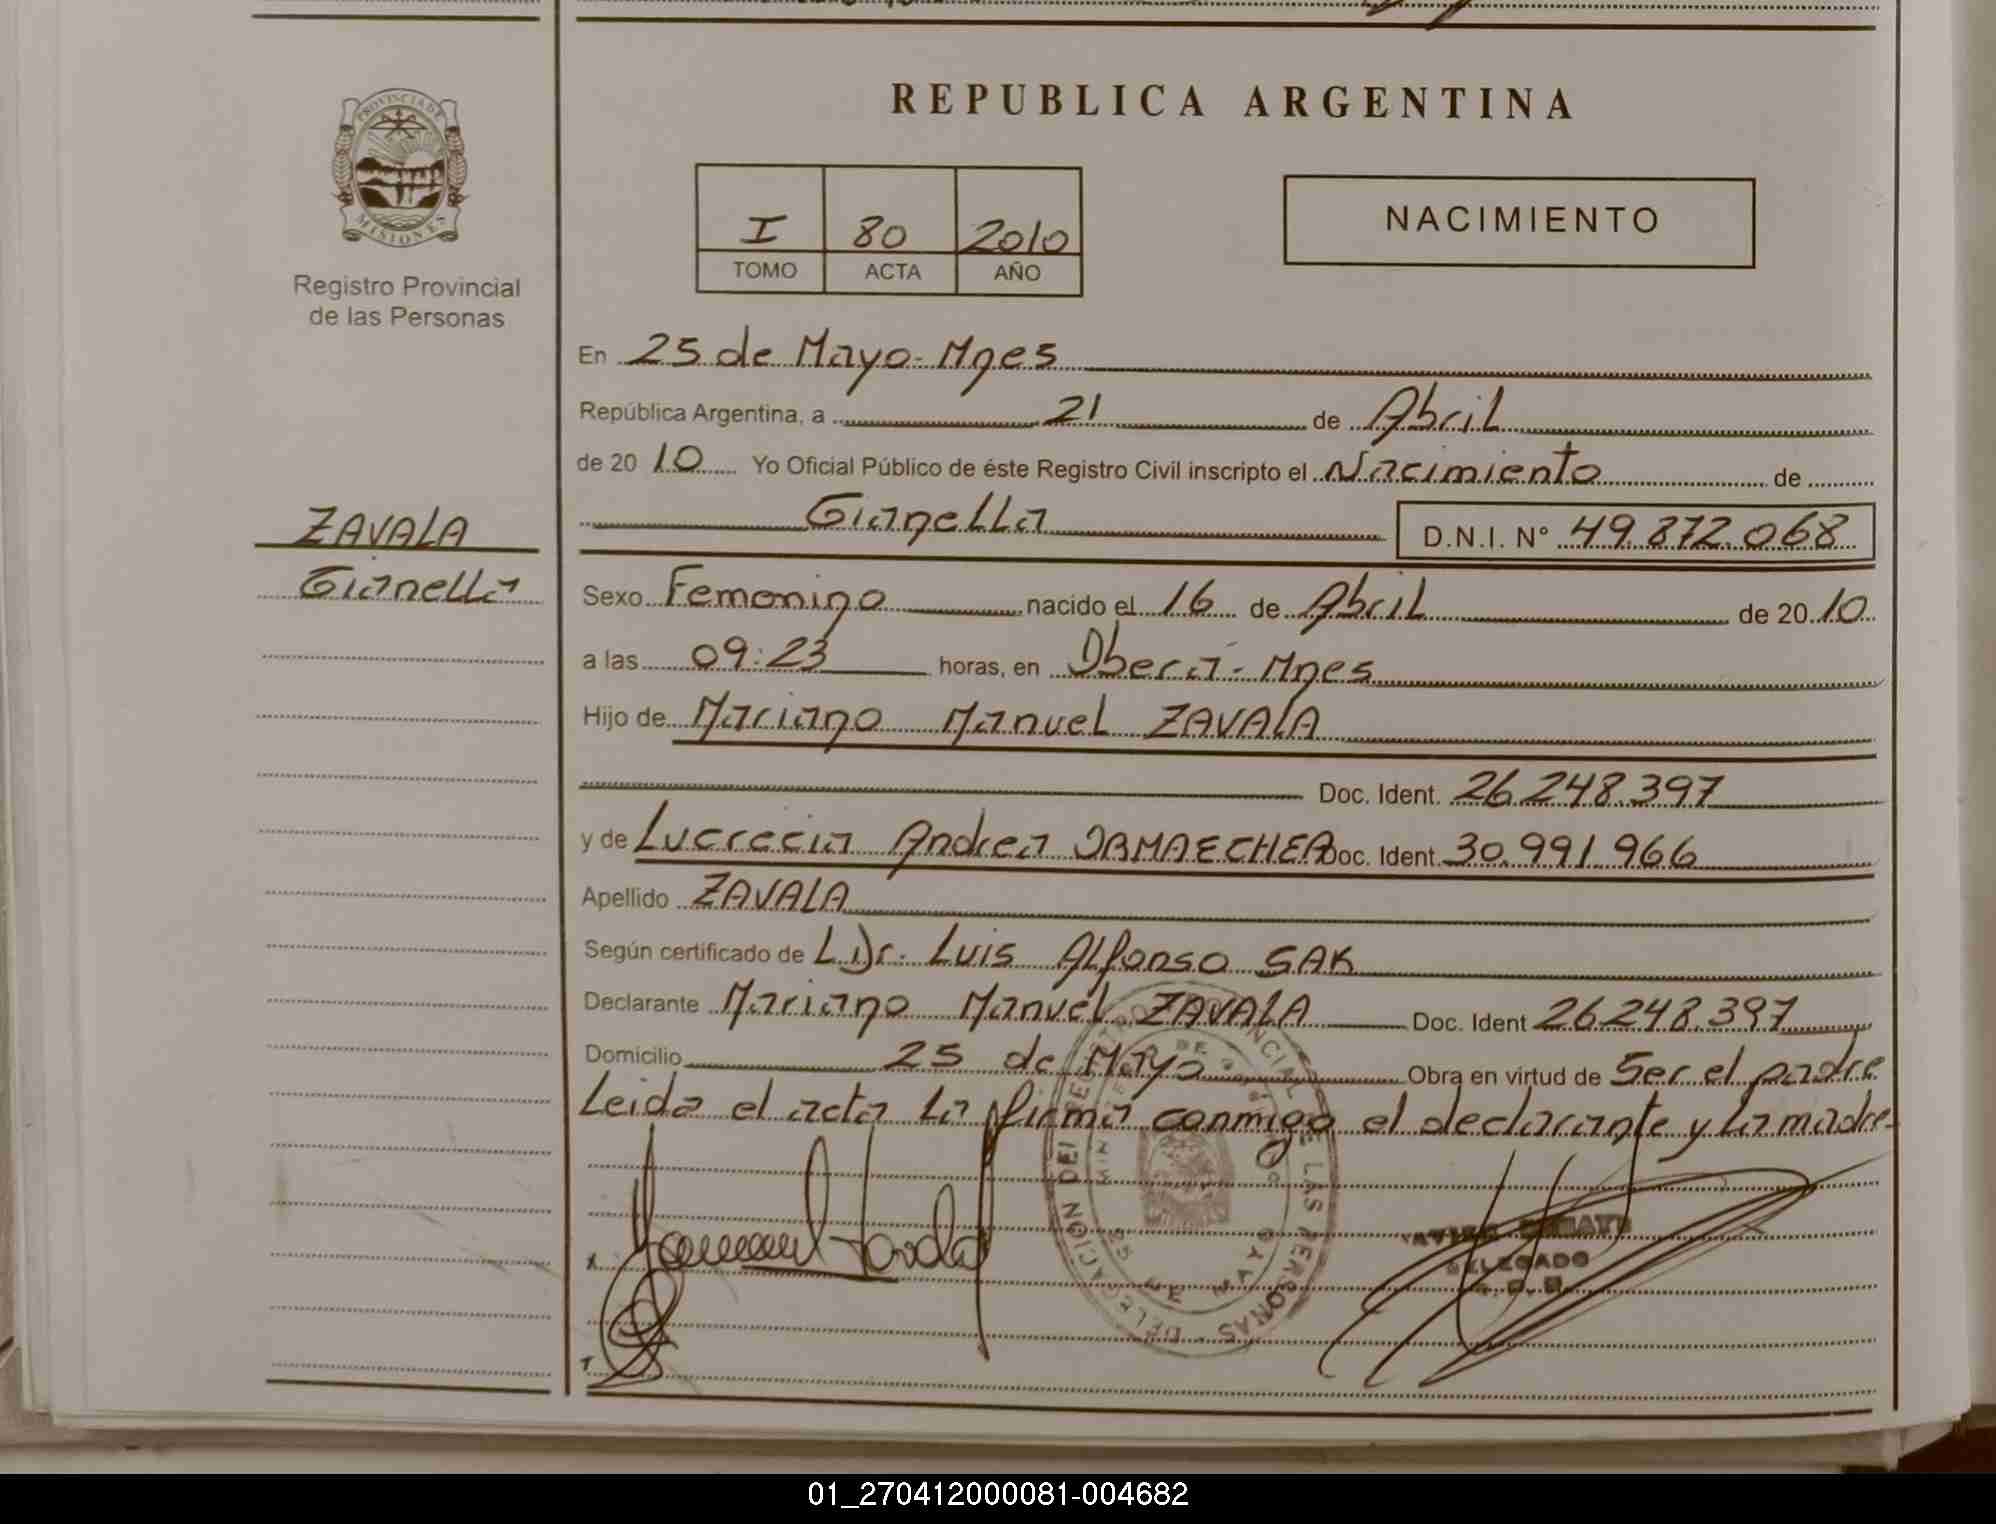 PROVINCIA DE
MISIONES
Registro Provincial
de las Personas
ZAVALA
Gianella
REPUBLICA ARGENTINA
I 80 2010
TOMO ACTA AÑO
NACIMIENTO
En 25 de Mayo - Mnes
República Argentina, a 21 de Abril
de 20 10 Yo Oficial Público de éste Registro Civil inscripto el Nacimiento de
Gianella D.N.I. N° 49.872.068
Sexo Femenino nacido el 16 de Abril de 20 10
a las 09:23 horas, en Oberá - Mnes
Hijo de Mariano Manuel ZAVALA
Doc. Ident. 26.248.397
y de Lucrecia Andrea Doc. Ident. 30.991.966
Apellido ZAVALA
Según certificado de Dr. Luis Alfonso SAK
Declarante Mariano Manuel ZAVALA Doc. Ident 26.248.397
Domicilio 25 de Mayo Obra en virtud de Ser el padre
Leida el acta la firma conmigo el declarante y la madre
DELEGACION DEL REGISTRO PROVINCIAL DE LAS PERSONAS
25 DE MAYO
DELEGADO
01_270412000081-004682